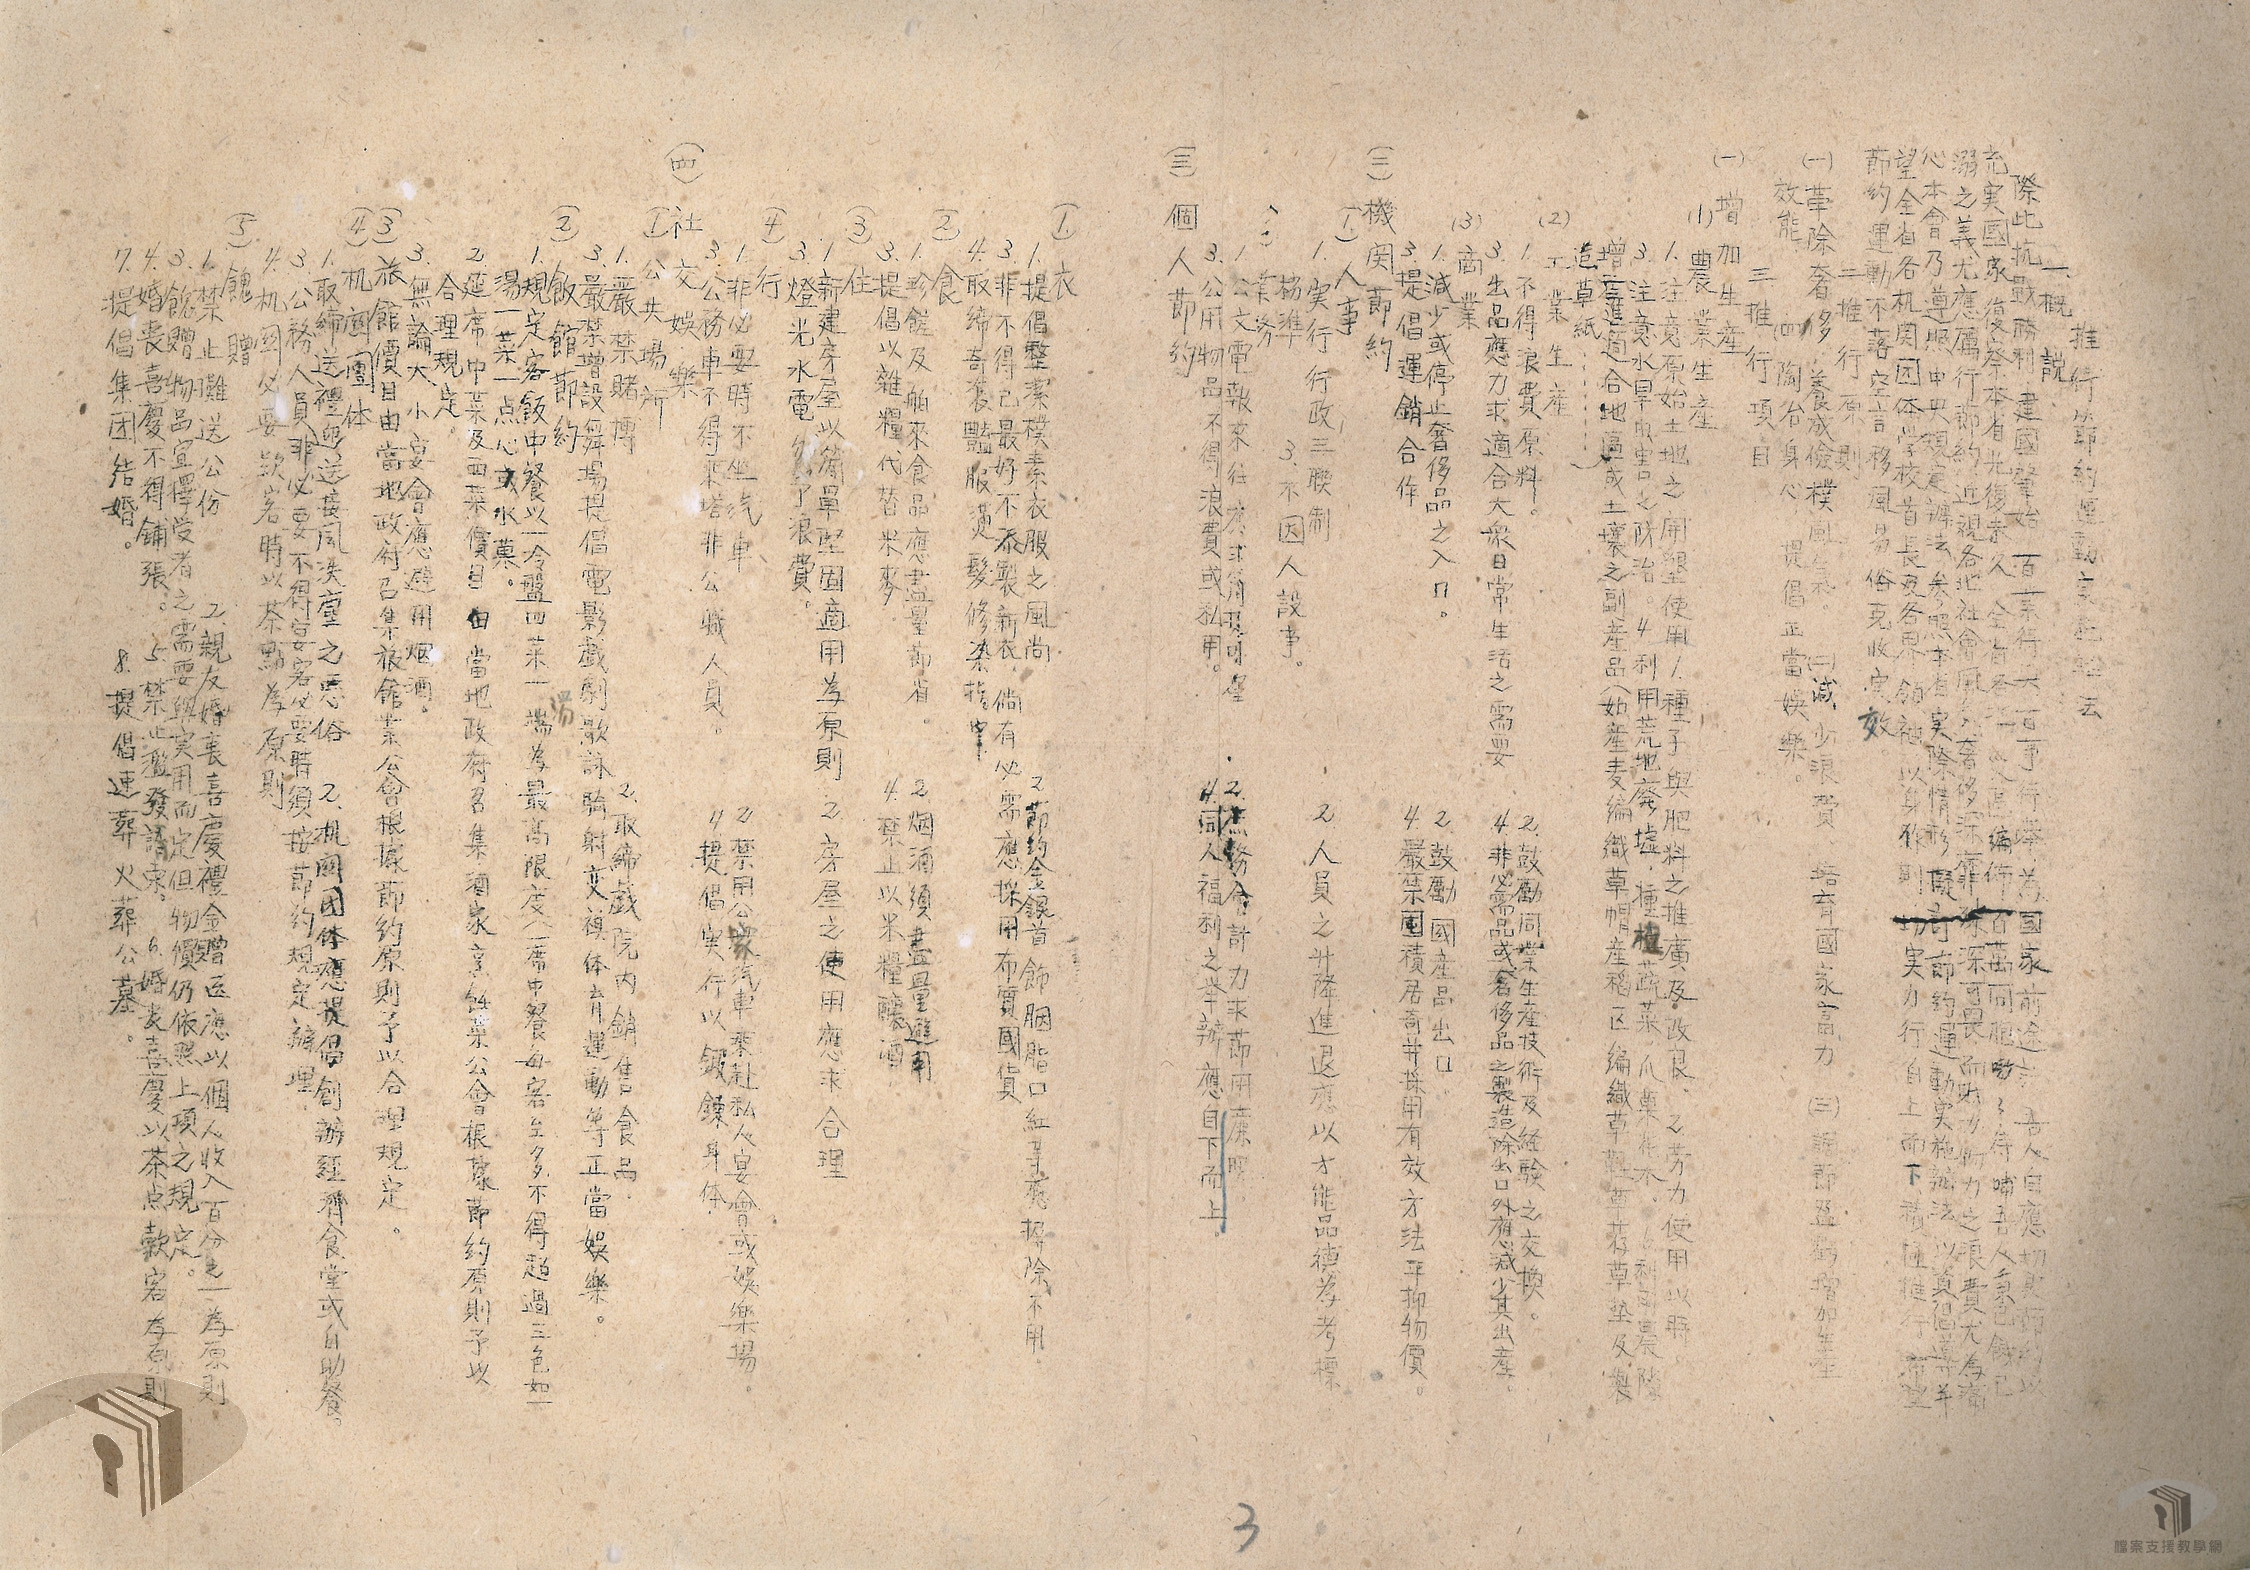 推行節約運動
一、概說
際此抗戰勝利、建國肇始、百業待興、百事待舉、為國家前途計、吾人自應切實節約以
充実國家復察本省光復未久、全省各百萬同胞嗷嗷待哺吾人
溺之義尤應厲行節約近視各地社會風奢侈深可畏而財力物力之浪費尤為痛
心本會乃遵照中央規定辦法參照本省実際情形擬訂節約運動実施辦法以資倡導并
望全省各机関团体学校首長及各界領袖以身作則切実力行自上而下積極推行
節約運動不落空言移風易俗克收宏效
二推行原則
(一)革除奢侈、養成儉樸風氣。(二)減少浪費、培育國家富力(三)調節盈虧增加生產
效能(四)陶冶身心、提倡正當娛樂。
三推行項目
(一)增加生產
(1)農業生產
1.注意原始土地之開墾使用1.種子與肥料之推廣及改良、2.勞力使用以時
3.注意水旱虫害之防治。4.利用荒地廢墟、種植蔬菜、瓜菓花木、利用農隙
增進適合地區或土壤之副產品(如產麦編織草帽產稻区編織草鞋草蓆草垫及製
造草紙……)
(2)工業生產
1.不得浪費原料。2.鼓勵同業生產技術及経験之交換。
3.出品應力求適合大衆日常生活之需要 4.非必需品或奢侈品之製造除出口外應減少其出產。
(3)商業
1.減少或停止奢侈品之入口。2.鼓勵國產品出口。
3.提倡運銷合作 4.嚴禁囤積居奇并採用有效方法平抑物價。
(三)機関節約
(1)人事
1.実行行政三聯制 2.人員之升降進退應以才能品德為考標
標準 3.不因人設事。
業務
1.公文電報來往 2.庶務會計力求節用
3.公用物品不得浪費或私用。4.同人福利之举辦應自下而上。
(三)個人節約
(1)衣
1.提倡整潔樸素衣服之風尚 2.節約金銀首飾胭脂口紅等應摒除不用
3.非不得已最好不添製新衣、倘有必需應採用布質國貨
4.取締奇裝豔服燙髮修染指甲
(2)食
1.珍饈及舶來食品應盡量節省。2.烟酒須盡量避用
3.提倡以雜糧代替米麥 4.禁止以米糧釀酒
(3)住
1.新建房屋以簡單堅固適用為原則 2.房屋之使用應求合理
3.燈光水電勿浪費。
(4)行
1.非必要時不坐汽車 2.禁用公家汽車乘赴私人宴會或娛樂場。
3.公務車不得乘搭非公職人員。4.提倡実行以鍛鍊身体
(四)社交娛樂
(1)公共場所
1.嚴禁賭博 2.取締戲院內銷售食品.
3.嚴禁增設舞場提倡電影戲劇歌詠騎射交棋体育運動等正當娛樂。
(2)飯館節約
1.規定客飯中餐以一冷盤四菜一湯為最高限度(一席中餐每客至多不得超過三色如一
湯一菜一点心或水菓。
2.延席中菜及西菜價目由當地政府召集酒家烹飪業公會根據節約原則予以
合理規定。
3.無論大小宴會應避用烟酒。
(3)旅館價目由當地政府召集旅館業公會根據節約原則予以合理規定。
(4)机関團体
1.取締送禮迎送接風洗塵之惡俗 2.机関团体應提倡創辦経濟食堂或自助餐。
3.公務人員非必要不得宴客必要時須按節約規定辦理
4.机関必要欵客時以茶點為原則
(5)餽贈
1.禁止雕送公份 2.親友婚喪喜慶禮金贈送應以個人收入百分之一為原則
3.餽贈物品宜擇受者之需要與実用而定但物價仍依照上項之規定。
4.婚喪喜慶不得鋪張。5.禁止濫發請柬。6.婚喪喜慶以茶点欵客為原則
7.提倡集团结婚。8.提倡速葬火葬公墓。
3
檔案支援教學網